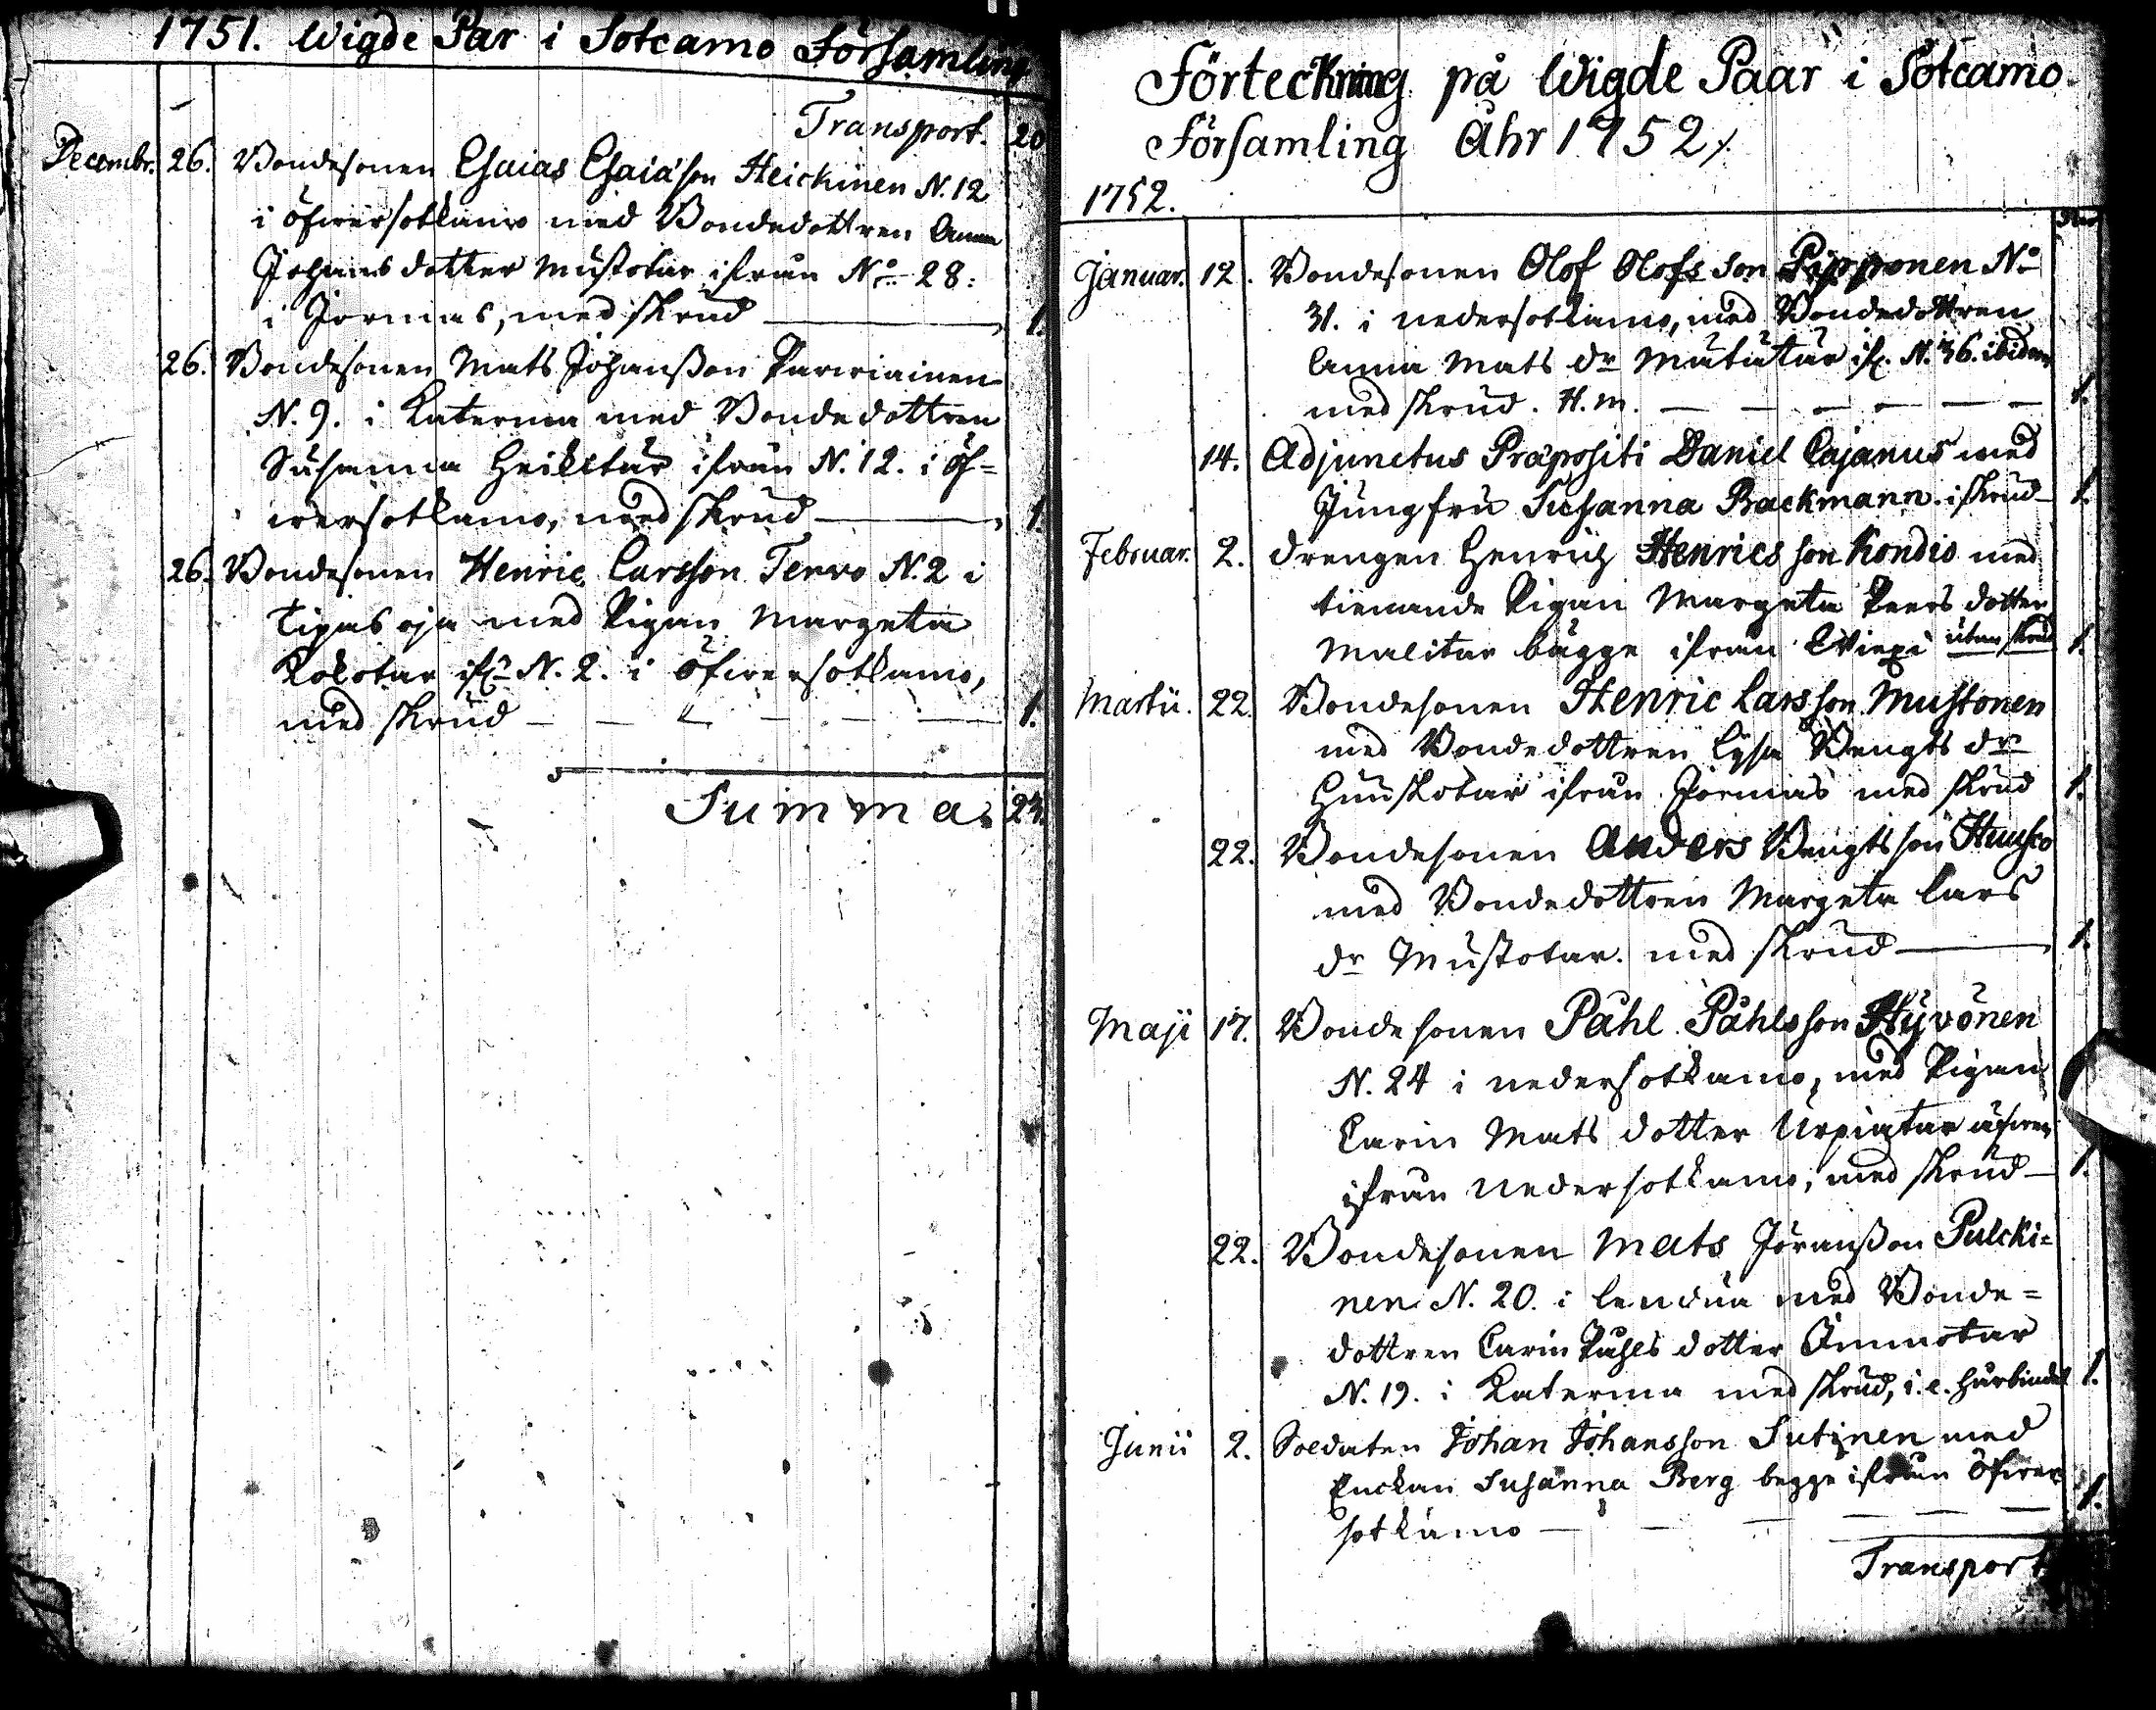 1751. Wigde Par i Sotcamo Församling
Transport. 20
Decembr. 26. Bondesonen Esaias Esaiæson Heickinen N. 12
i öfwersotkamo med Bondedottren Anna
Johans dotter Mustotar ifrån No 28:
i Jormas, med skrud 1.
26. Bondesonen Mats Johansson Parwiainen
N. 9. i Katerma med Bondedottren
Susanna Heikitär ifrån N. 12. i öf=
wersotkamo, med skrud 1.
26. Bondesonen Henric Larsson Terwo N. 2 i
Tipasoja med Pigan Margeta
Kokotar ifr. N. 2. i öfwersotkamo,
med skrud 1.
Summa. 23.
Förteckning på Wigde Paar i Sotcamo
Församling Åhr 1752
1752.
Januar. 12. Bondesonen Olof Olofsson Pipponen No
31. i nedersotkamo, med Bondedottren
Anna Mats dr Mutatar ifr. N. 36. ibidem
med skrud. H. m. 1.
14. Adjunctus Præpositi Daniel Cajanus med
Jungfru Susanna Backmann i skrud 1.
Februar. 2. drengen Henrich Henricsson Kondio med
tienande Pigan Margeta Peers dotter
Malitar bägge ifrån Wiexi utan skrud 1.
Martii. 22. Bondesonen Henric Larsson Mustonen
med Bondedottren Lisa Bengts dr
Huuskotar ifrån Jormas med skrud 1.
22. Bondesonen Anders Bengtsson Huusko
med Bondedottren Margeta Lars
dr Mustotar. med skrud 1.
Maji 17. Bondesonen Påhl Påhlsson Hyvönen
N. 24 i nedersotkamo, med Pigan
Carin Mats dotter Urpiatar äfwen
ifrån nedersotkamo, med skrud 1.
22. Bondesonen Mats Jöransson Pulcki=
nen N. 20. i Lendua med Bonde=
dottren Carin Påhls dotter Immotar
N. 19. i Katerma med skrud, i. e. hårbindel 1.
Junii 2. Soldaten Johan Johansson Sutinen med
Enckan Susanna Berg begge ifrån öfwer
sotkamo 1.
Transport